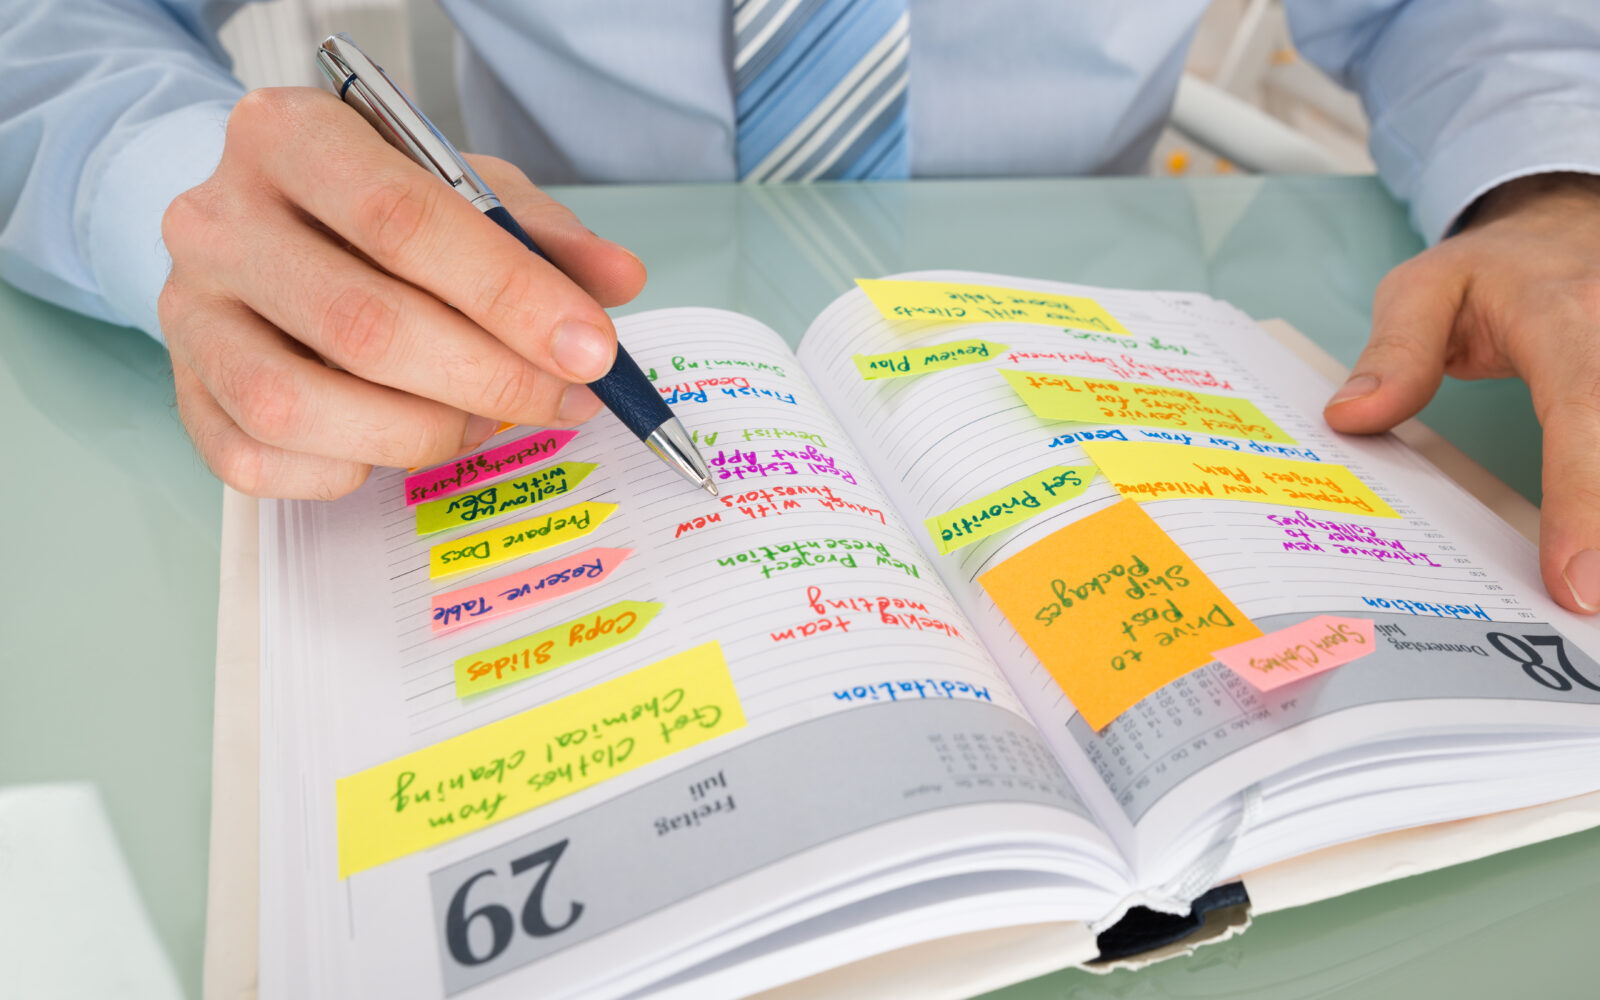 28
Donnerstag
Juli
Meditation
Introduce new
colleagues
Prepare new Milestone
Project Plan
Pickup Car from Dealer
Select Service
Providers for
Review and Test
Meeting with
Marketing Department
Yoga Classes
Dinner with Clients
Reserve Table
Sport Clothes
Drive to
Post
Ship
Packages
Set Prioritie
Review Plan
29
Freitag
Juli
Meditation
Weekly team
meeting
New Project
Presentation
Lunch with new
Investors
Real Estate
Agent App
Dentist A
Finish Rep
Deadlin
Swimming
Get Clothes from
Chemical cleaning
Copy Slides
Reserve Table
Prepare Docs
Follow up
with Dev
Update Charts